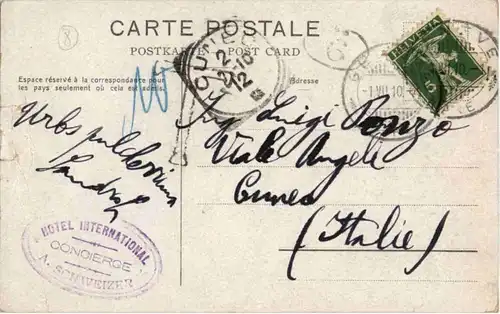 CARTE POSTALE
POSTKARTE POST CARD
Espace réservé à la correspondance pour
les pays seulement où cela est admis.
Adresse
CUNEO
2
12
HELVETIA
5
GENÈVE
-1.VII.10
Luigi Ponzo
Viale Angeli
Cuneo
(Italie)
Urbs pulcherrima
HOTEL INTERNATIONAL
CONCIERGE
A. SCHWEIZER